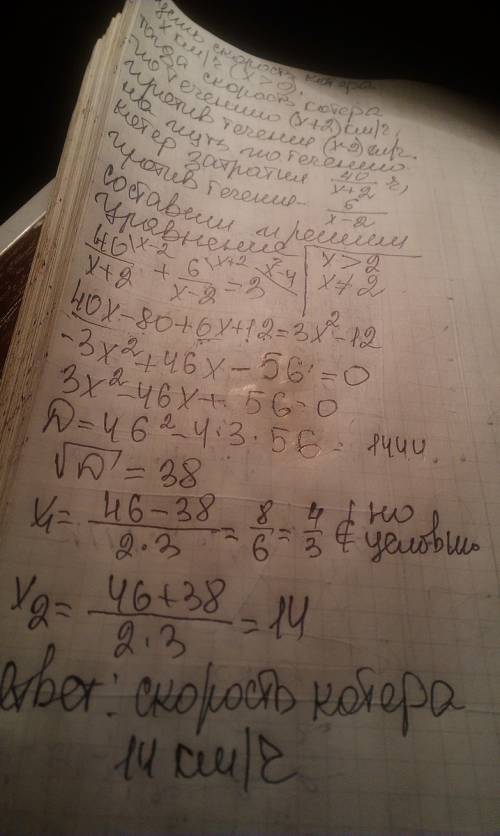 скорость катера
x км/ч (x>0),
тогда скорость катера
по течению (x+2) км/ч,
против течения (x-2) км/ч.
на путь по течению
катер затратил 40/(x+2) ч,
против течения 6/(x-2)
составим и решим
уравнение
40\x-2/(x+2) + 6\x+2/(x-2) = 3\x²-4 | x>2
x≠2
40x-80+6x+12=3x²-12
-3x²+46x-56=0
3x²-46x+56=0
D=46²-4·3·56=1444
√D=38
x₁= (46-38)/(2·3) = 8/6 = 4/3 ∉ по условию
x₂= (46+38)/(2·3) = 14
ответ: скорость катера
14 км/ч